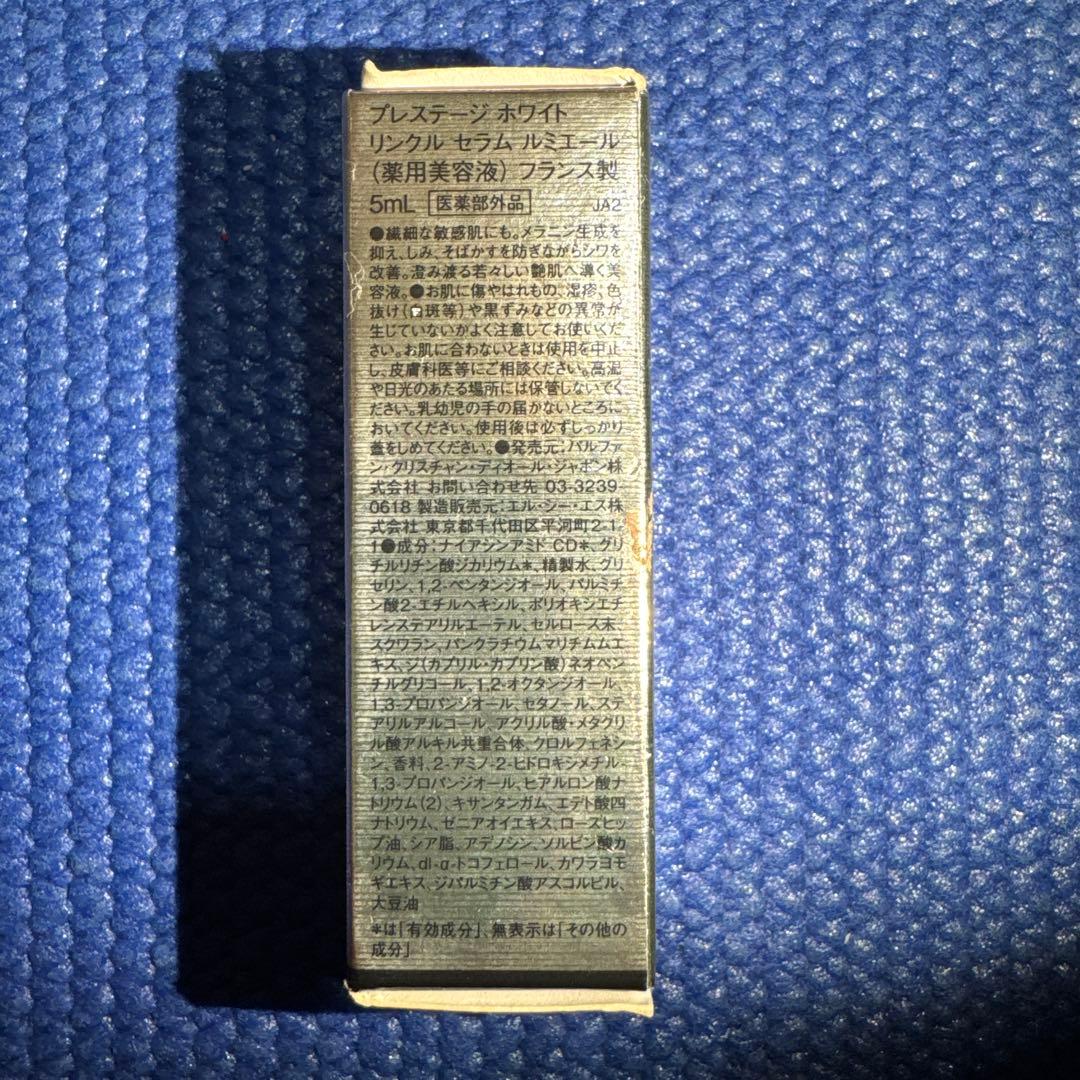 プレステージ ホワイト
リンクル セラム ルミエール
(薬用美容液) フランス製
5mL 医薬部外品 JA2
●繊細な敏感肌にも。メラニン生成を
抑え、しみ、そばかすを防ぎながらシワを
改善。澄み渡る若々しい艶肌へ導く美
容液。●お肌に傷やはれもの、湿疹、色
抜け(白斑等)や黒ずみなどの異常が
生じていないかよく注意してお使いくだ
さい。お肌に合わないときは使用を中止
し、皮膚科医等にご相談ください。高温
や日光のあたる場所には保管しないでく
ださい。乳幼児の手の届かないところに
おいてください。使用後は必ずしっかり
蓋をしめてください。●発売元:パルファ
ン・クリスチャン・ディオール・ジャポン株
式会社 お問い合わせ先 03-3239-
0618 製造販売元:エル・シー・エス株
式会社 東京都千代田区平河町2-1-
1●成分:ナイアシンアミド CD*、グリ
チルリチン酸ジカリウム*、精製水、グリ
セリン、1,2-ペンタンジオール、パルミチ
ン酸2-エチルヘキシル、ポリオキシエチ
レンステアリルエーテル、セルロース末、
スクワラン、パンクラチウムマリチムムエ
キス、ジ(カプリル・カプリン酸)ネオペン
チルグリコール、1,2-オクタンジオール、
1,3-プロパンジオール、セタノール、ステ
アリルアルコール、アクリル酸・メタクリ
ル酸アルキル共重合体、クロルフェネシ
ン、香料、2-アミノ-2-ヒドロキシメチル-
1,3-プロパンジオール、ヒアルロン酸ナ
トリウム(2)、キサンタンガム、エデト酸四
ナトリウム、ゼニアオイエキス、ローズヒッ
プ油、シア脂、アデノシン、ソルビン酸カ
リウム、dl-α-トコフェロール、カワラヨモ
ギエキス、ジパルミチン酸アスコルビル、
大豆油
*は「有効成分」、無表示は「その他の
成分」